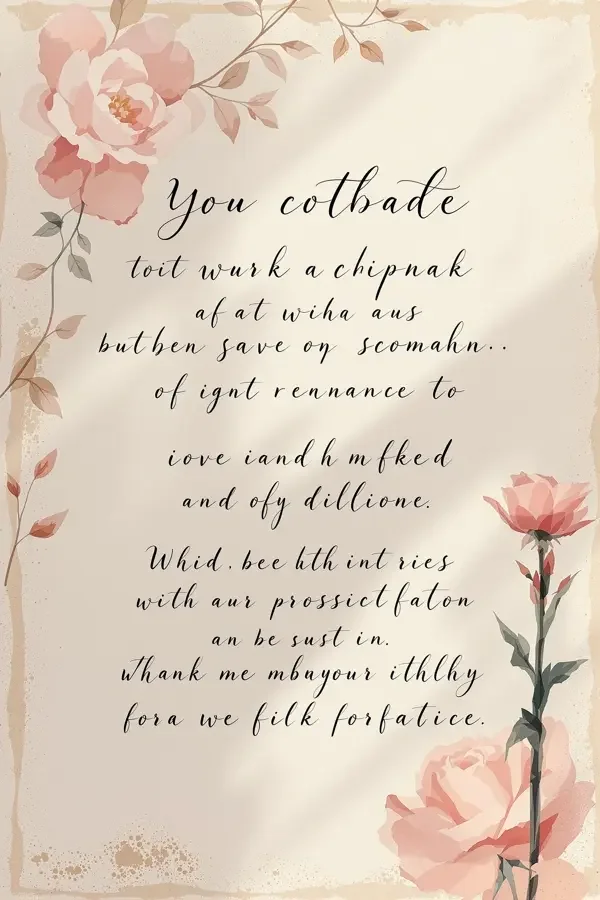 You cotbade
toit wurk a chipnak
af at wiha aus
butben save on scomahn..
of ignt rennance to
iove iand h mfked
and ofy dillione.
Whid. bee hth int ries
with aur prossict faton
an be sust in.
Whank me mbuyour ithlhy
fora we filk forfatice.